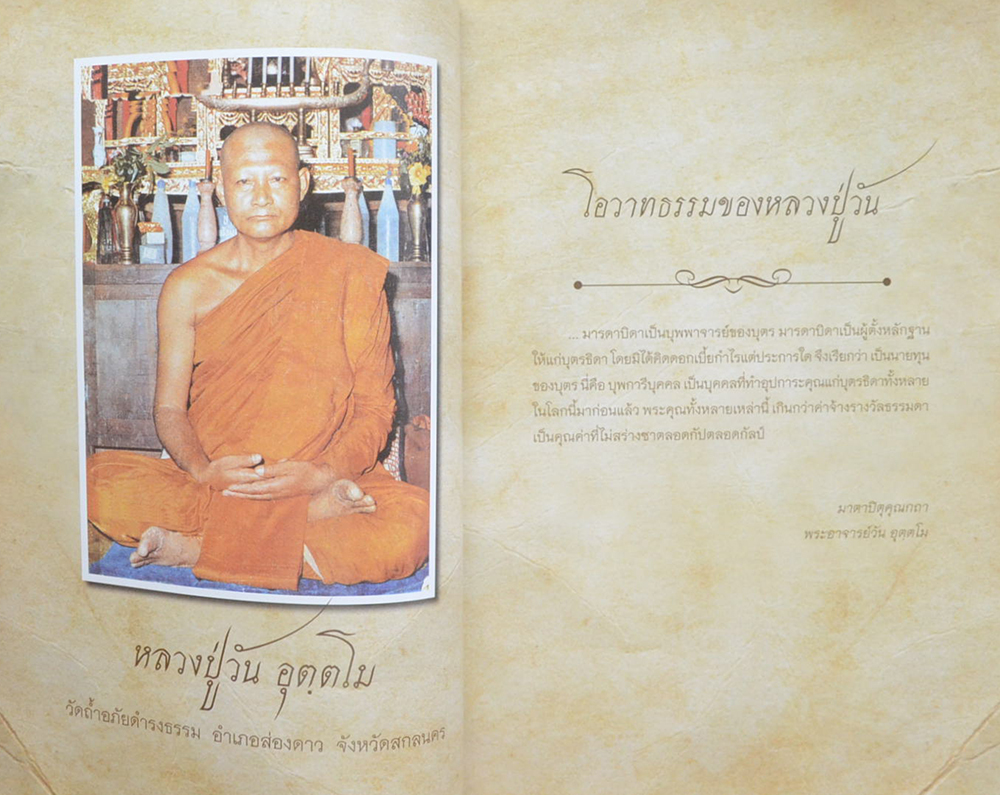 หลวงปู่วัน อุตฺตโม
วัดถ้ำอภัยดำรงธรรม อำเภอส่องดาว จังหวัดสกลนคร
โอวาทธรรมของหลวงปู่วัน
... มารดาบิดาเป็นบุพพาจารย์ของบุตร มารดาบิดาเป็นผู้ตั้งหลักฐาน
ให้แก่บุตรธิดา โดยมิได้คิดดอกเบี้ยกำไรแต่ประการใด จึงเรียกว่า เป็นนายทุน
ของบุตร นี่คือ บุพการีบุคคล เป็นบุคคลที่ทำอุปการะคุณแก่บุตรธิดาทั้งหลาย
ในโลกนี้มาก่อนแล้ว พระคุณทั้งหลายเหล่านี้ เกินกว่าค่าจ้างรางวัลธรรมดา
เป็นคุณค่าที่ไม่สร่างซาตลอดกัปตลอดกัลป์
มาตาปิตุคุณกถา
พระอาจารย์วัน อุตฺตโม